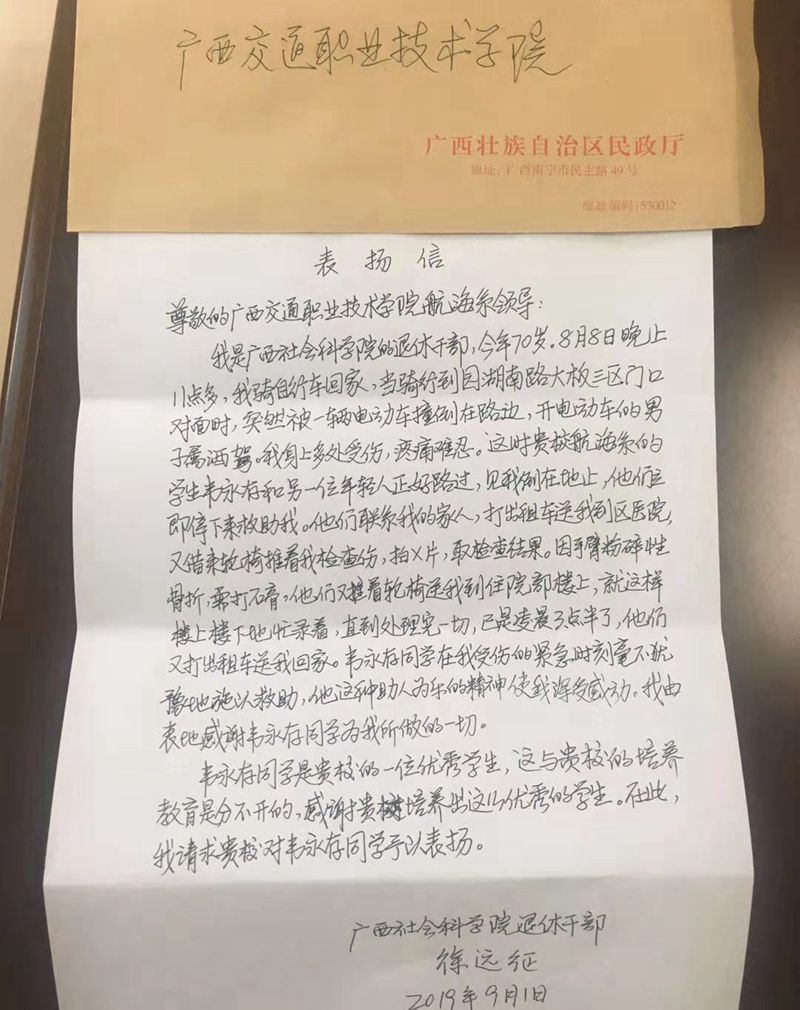 广西交通职业技术学院
广西壮族自治区民政厅
地址:广西南宁市民主路49号
邮政编码:530012
表扬信
尊敬的广西交通职业技术学院航海系领导:
我是广西社会科学院的退休干部,今年70岁。8月8日晚上
11点多,我骑自行车回家,当骑行到园湖南路大板三区门口
对面时,突然被一辆电动车撞倒在路边,开电动车的男
子属酒驾。我身上多处受伤,疼痛难忍。这时贵校航海系的
学生韦永存和另一位年轻人正好路过,见我倒在地上,他们立
即停下来救助我。他们联系我的家人,打出租车送我到区医院,
又借来轮椅推着我检查伤,拍X片,取检查结果。因手臂粉碎性
骨折,需打石膏,他们又推着轮椅送我到住院部楼上,就这样
楼上楼下地忙录着,直到处理完一切,已是凌晨3点半了,他们
又打出租车送我回家。韦永存同学在我受伤的紧急时刻毫不犹
豫地施以救助,他这种助人为乐的精神使我深受感动。我由
表地感谢韦永存同学为我所做的一切。
韦永存同学是贵校的一位优秀学生,这与贵校的培养
教育是分不开的,感谢贵校培养出这么优秀的学生。在此,
我请求贵校对韦永存同学予以表扬。
广西社会科学院退休干部
徐远征
2019年9月1日